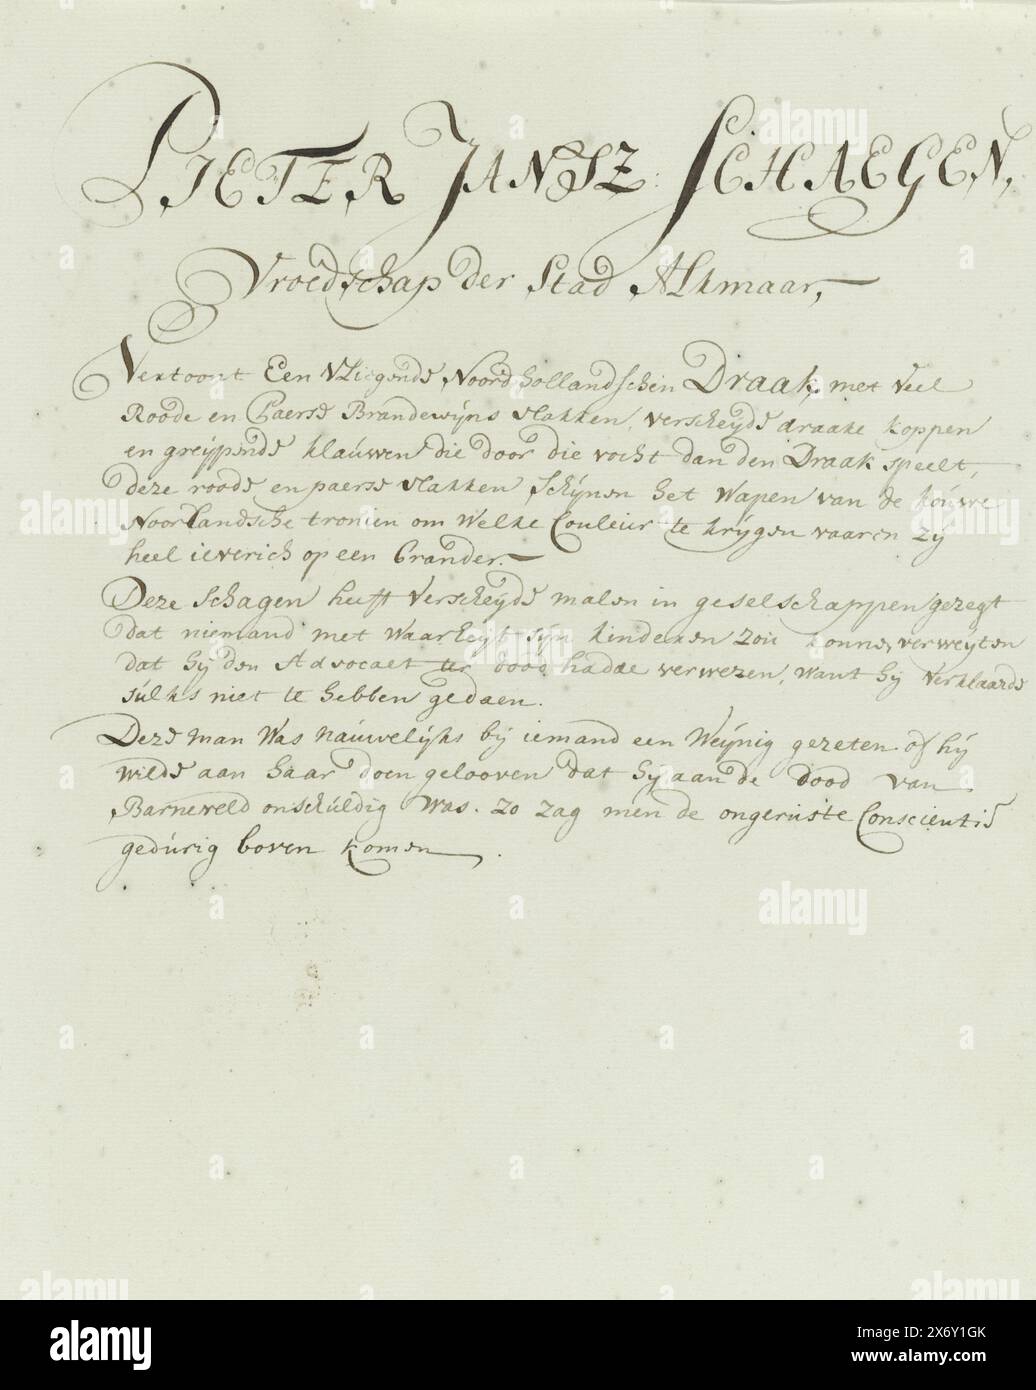 PIETER JANSZ: SCHAEGEN,
Vroedschap der Stad Alkmaar,
Vertoont Een Vliegende Noord hollandschen Draak, met veel
Roode en Paerse Brandewijns vlakken, verscheyde draake koppen
en greijpende klauwen die door die vocht dan den Draak speelt,
deze roode en paerse vlakken schijnen het Wapen van de kouwe
Noorlandsche tronien om Welke Couleur te krygen vaaren zy
heel ieverich op een brander.
Deze Schagen heeft Verscheyde malen in geselschappen gezegt
dat niemand met Waarheyt syn kinderen zou konne, verweyten
dat hy den Advocaet ter dood hadde verwezen, want hy verklaarde
sulks niet te hebben gedaen.
Deze man Was nauwelijks by iemand een Weynig gezeten of hy
wilde aan haar doen gelooven dat hy aan de dood van
Barneveld onschuldig was. zo zag men de ongeruste Conscientie
gedurig boven komen.
alamy
Image ID: 2X6Y1GK
www.alamy.com